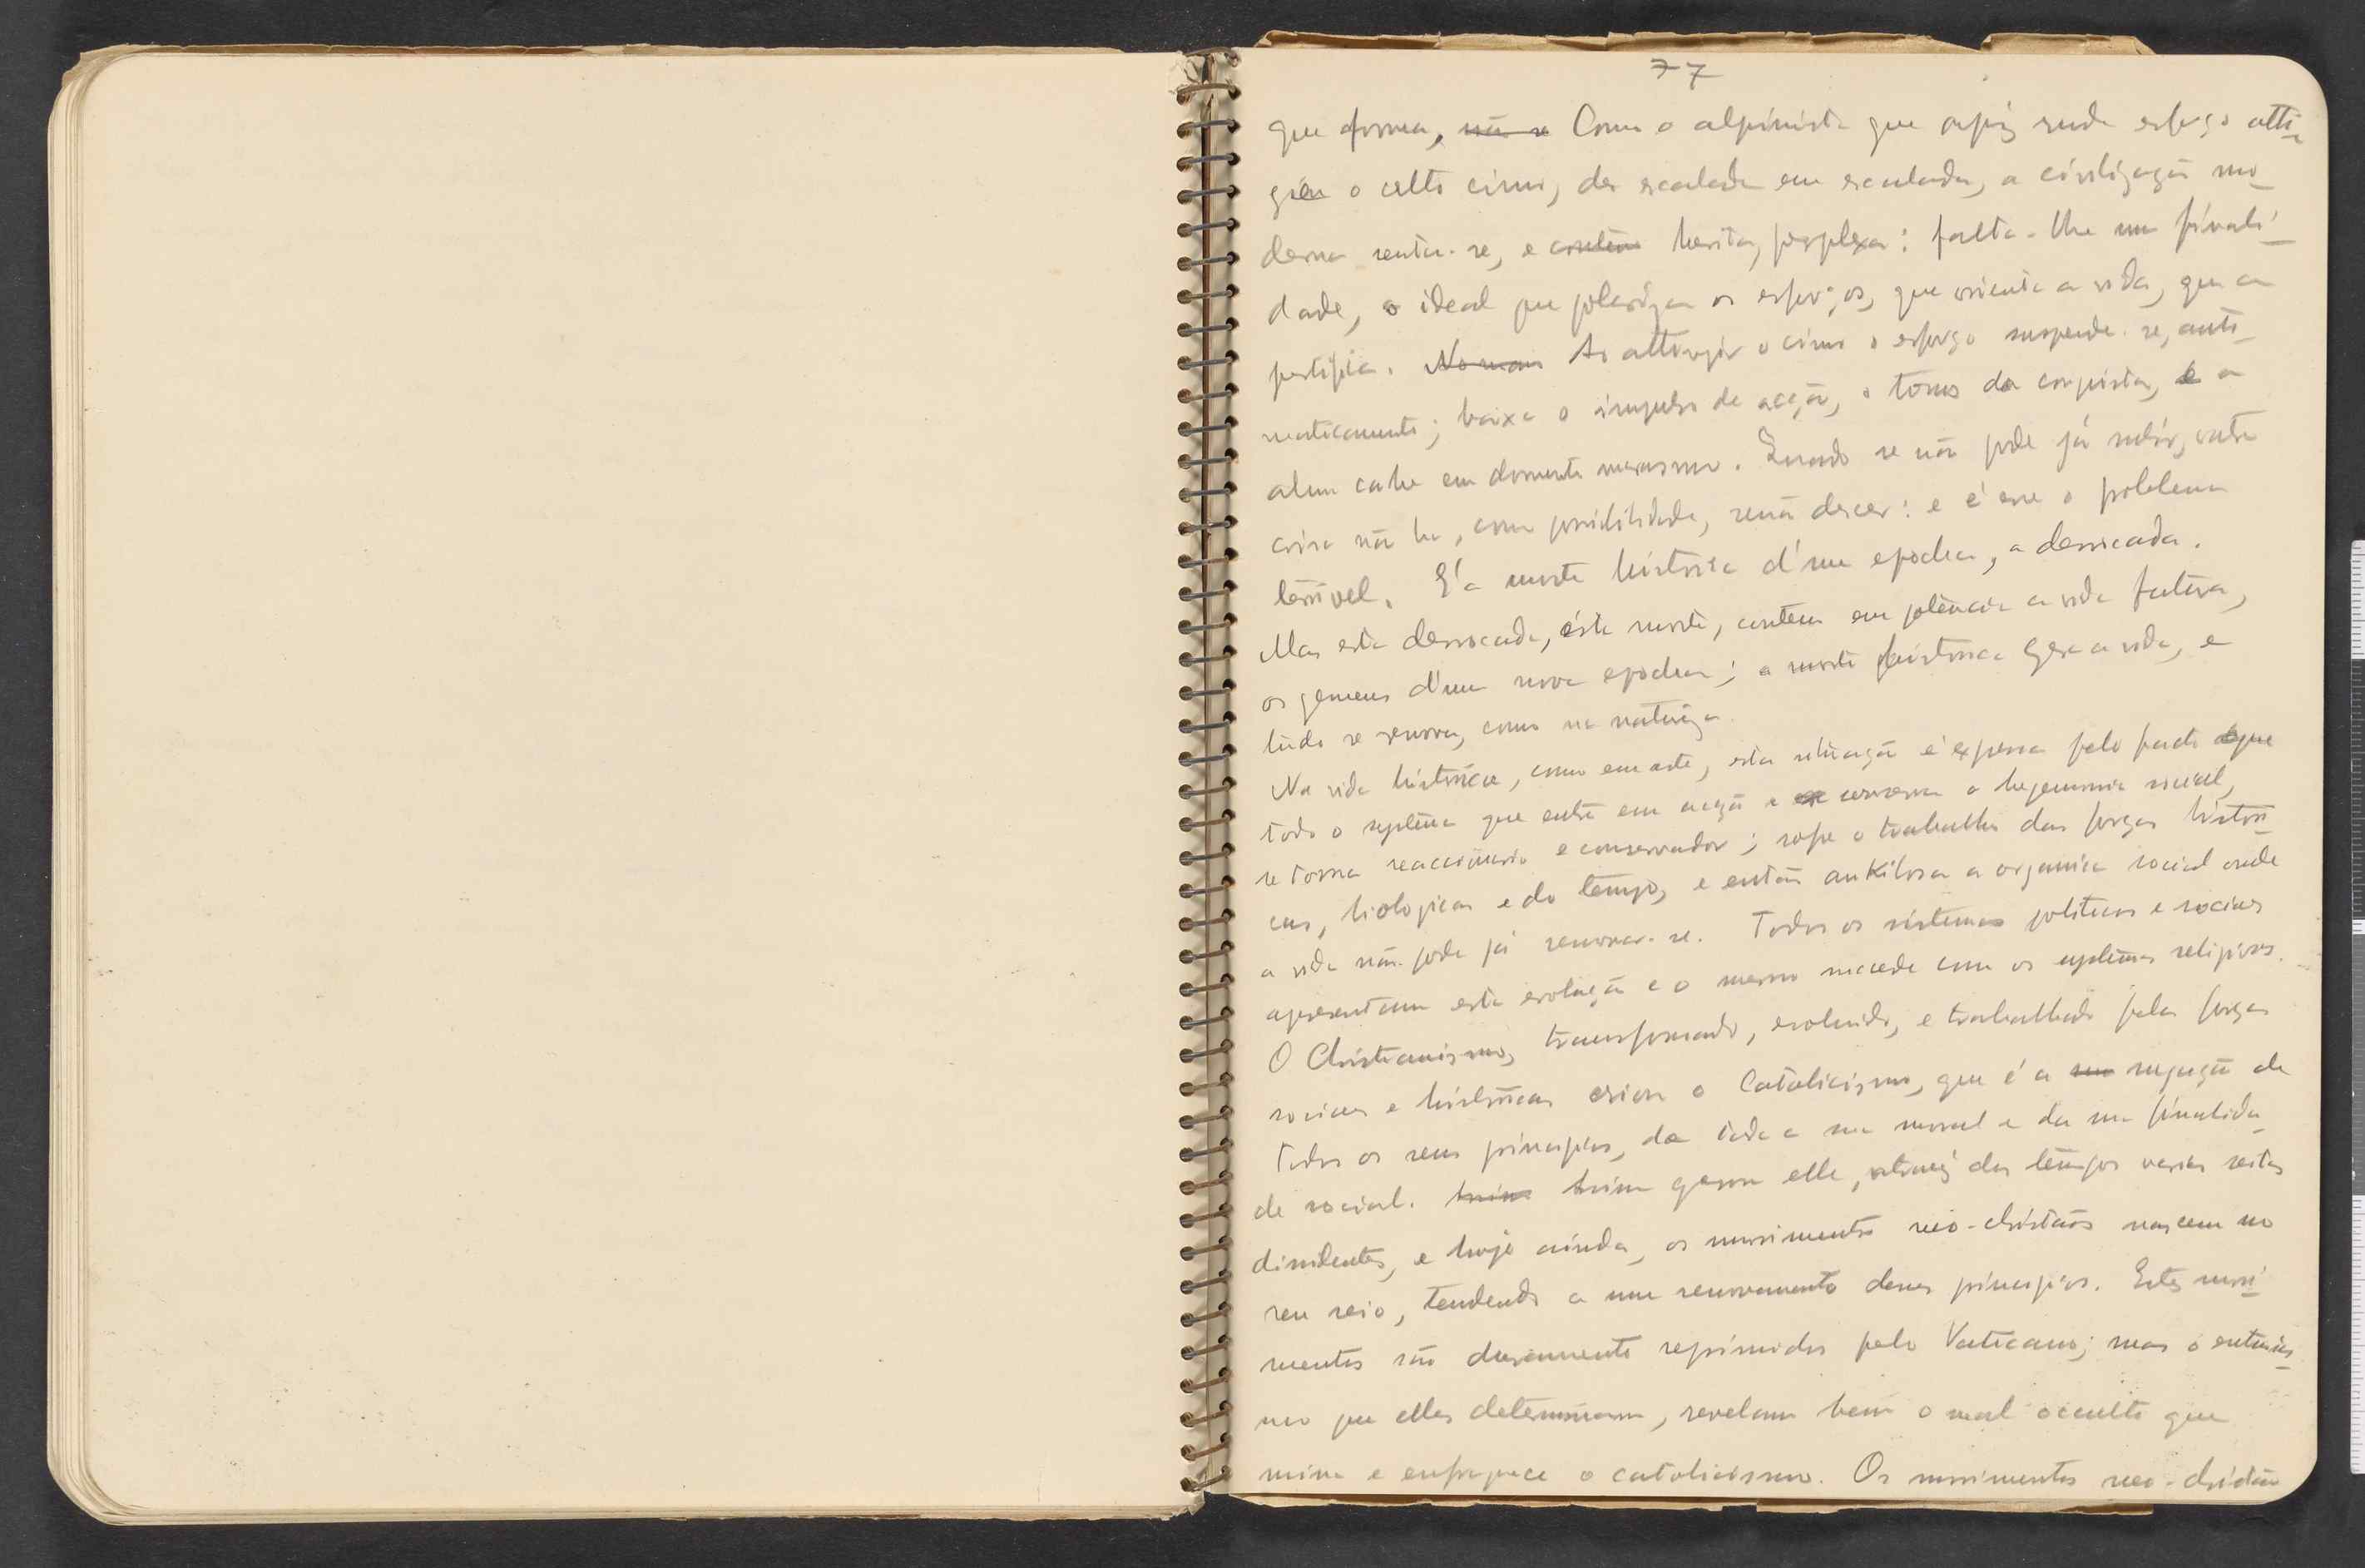 77
que forma, não se Como o alpinista que após rude esforço atti-
giu o alto cimo, de escalada em escalada, a civilização mo-
derna senta-se, e contem hesita, perplexa: falta-lhe uma finali-
dade, o ideal que polariza os esforços, que orienta a vida, que a
justifica. No mais Ao attingir o cimo o esforço suspende-se, auto-
maticamente; baixa o impulso de acção, o tonus da conquista, e a
alma cahe em dormente marasmo. Quando se não pode já subir, outra
coisa não ha, como possibilidade, senão descer: e é esse o problema
terrivel. É a morte historica d'uma epocha, a derrocada.
Mas esta derrocada, esta morte, contem em potência a vida futura,
os germens d'uma nova epocha; a morte historica gera a vida, e
tudo se renova, como na natureza.
Na vida histórica, como em arte, esta situação é expressa pelo facto de que
todo o systema que entra em acção e conserva a hegemonia social,
se torna reaccionario e conservador; sofre o trabalho das forças históri-
cas, biologicas e do tempo, e então ankilosa a organica social onde
a vida não pode já renovar-se. Todos os sistemas politicos e sociaes
apresentam esta evolução e o mesmo succede com os systemas religiosos.
O Christianismo, transformado, evoluido, e trabalhado pelas forças
sociaes e históricas criou o Catolicismo, que é a sua negação de
todos os seus principios, de toda a sua moral e da sua finalida-
de social. Assim gerou elle, através dos tempos varias seitas
dissidentes, e hoje ainda, os movimentos neo-christãos nascem no
seu seio, tendendo a um renovamento desses principios. Estes movi-
mentos são duramente reprimidos pelo Vaticano; mas o entusias-
mo que elles determinam, revelam bem o mal occulto que
mina e enfraquece o catolicismo. Os movimentos neo-christãos